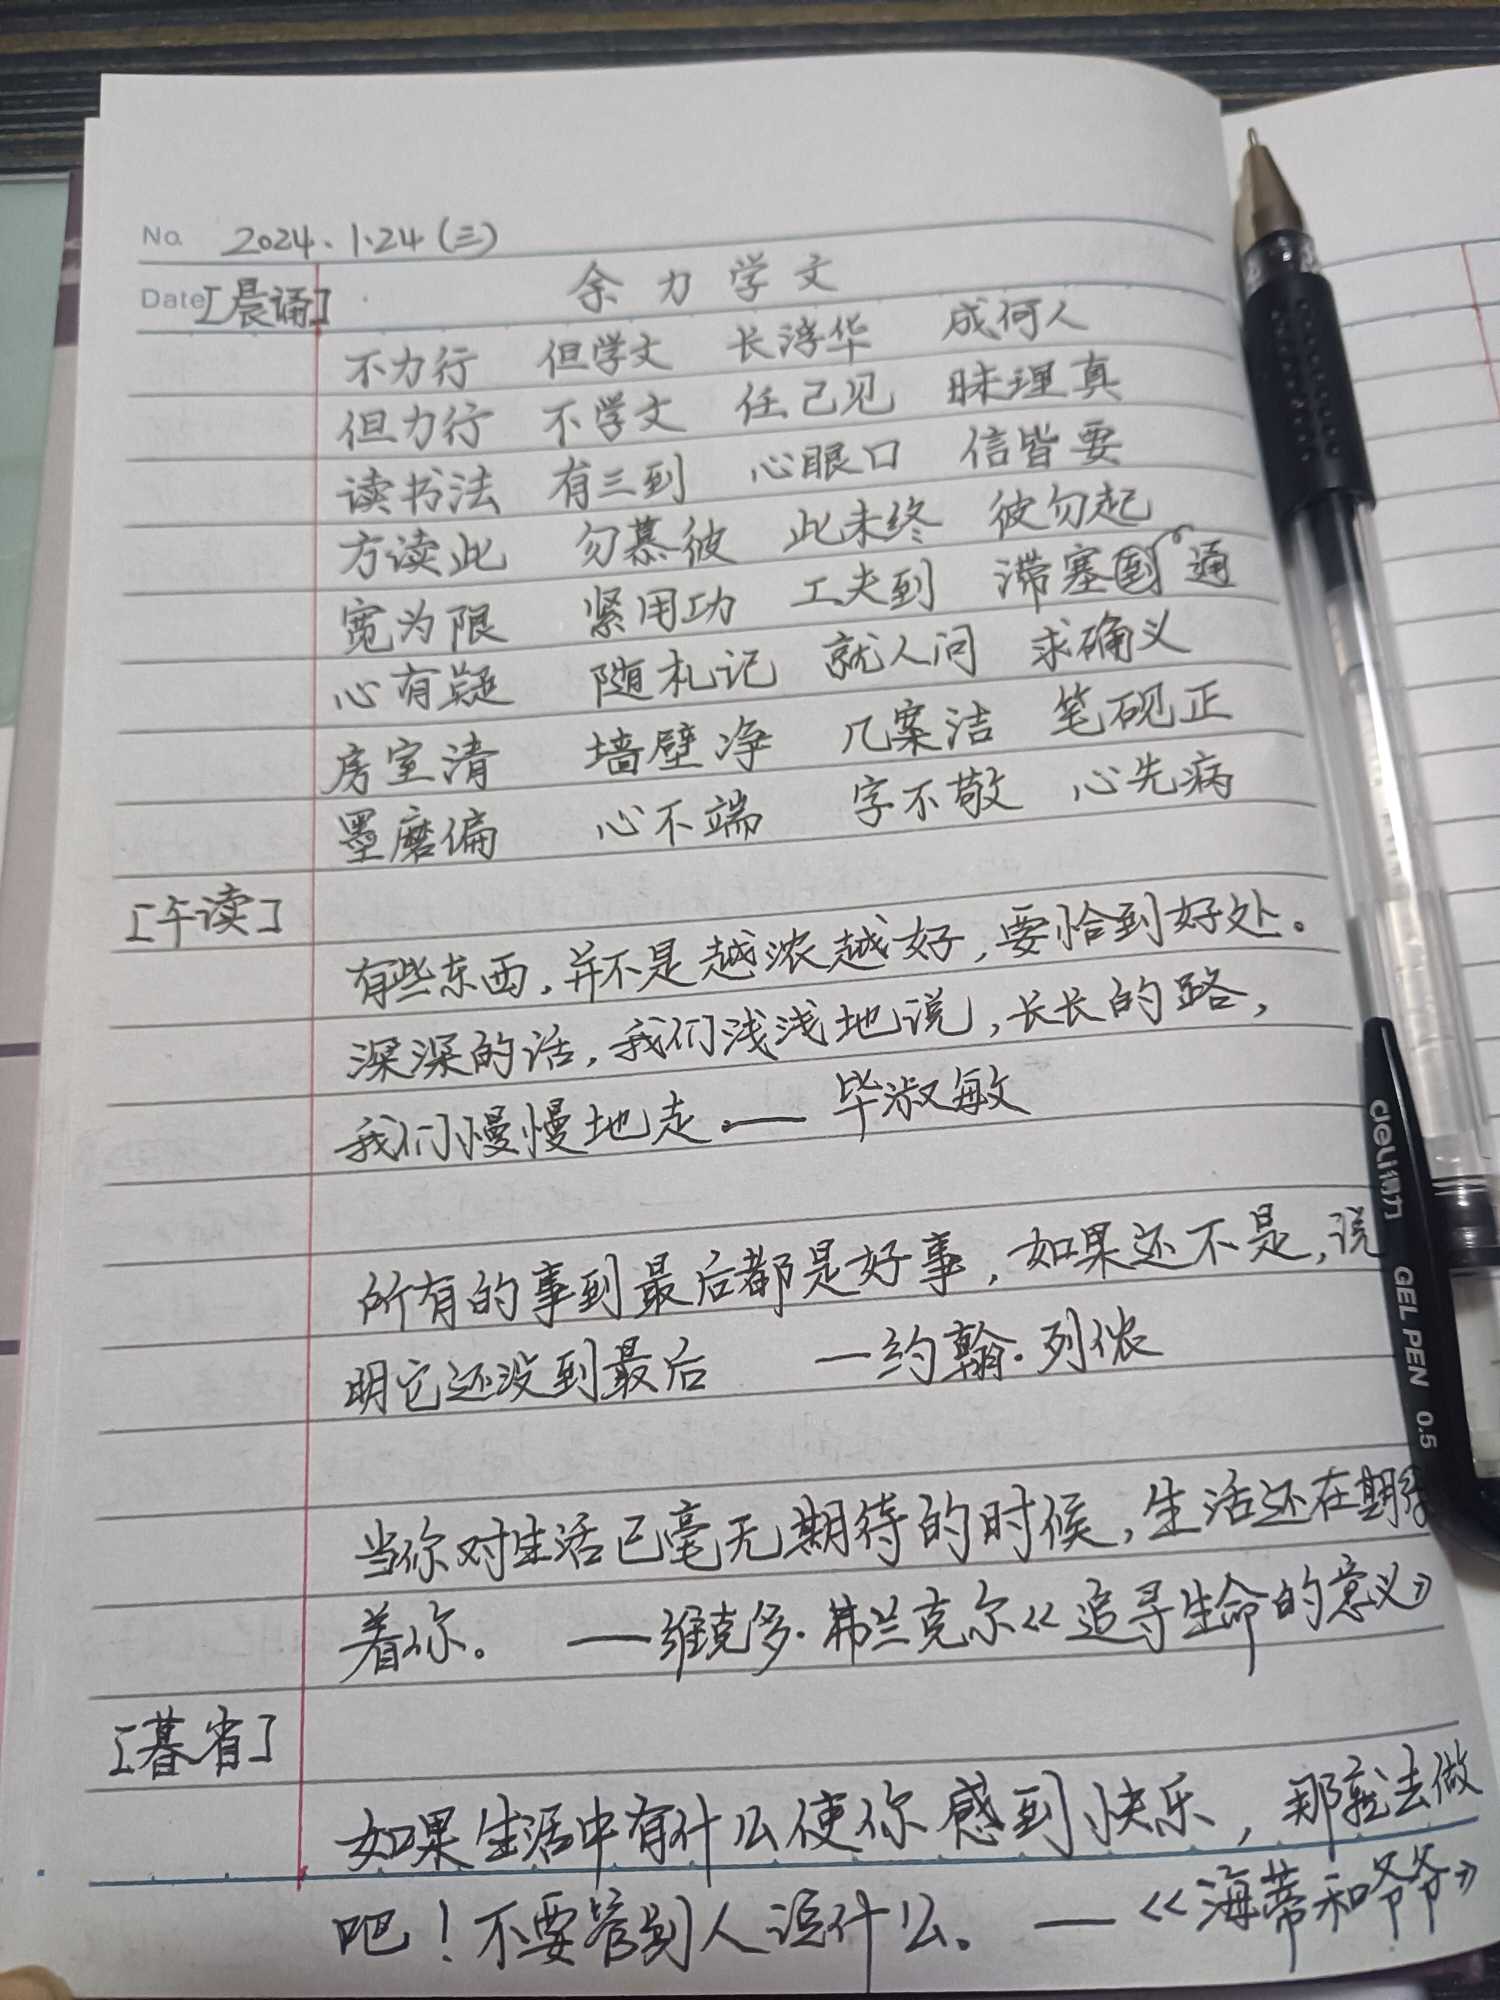 No. 2024.1.24(三)
Date [晨诵] 余力学文
不力行 但学文 长浮华 成何人
但力行 不学文 任己见 昧理真
读书法 有三到 心眼口 信皆要
方读此 勿慕彼 此未终 彼勿起
宽为限 紧用功 工夫到 滞塞 通
心有疑 随札记 就人问 求确义
房室清 墙壁净 几案洁 笔砚正
墨磨偏 心不端 字不敬 心先病
[午读]
有些东西,并不是越浓越好,要恰到好处。
深深的话,我们浅浅地说,长长的路,
我们慢慢地走.——毕淑敏
所有的事到最后都是好事,如果还不是,说
明它还没到最后 —约翰·列侬
当你对生活已毫无期待的时候,生活还在期待
着你。 ——维克多·弗兰克尔《追寻生命的意义》
[暮省]
如果生活中有什么使你感到快乐,那就去做
吧!不要管别人说什么。 ——《海蒂和爷爷》
deli得力 GEL PEN 0.5